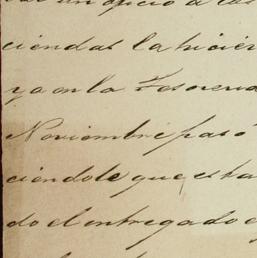 un oficio a las
ciendas la hicier
ya en la Tesoreria
Noviembre pasó
ciendole que esta
do el entregado